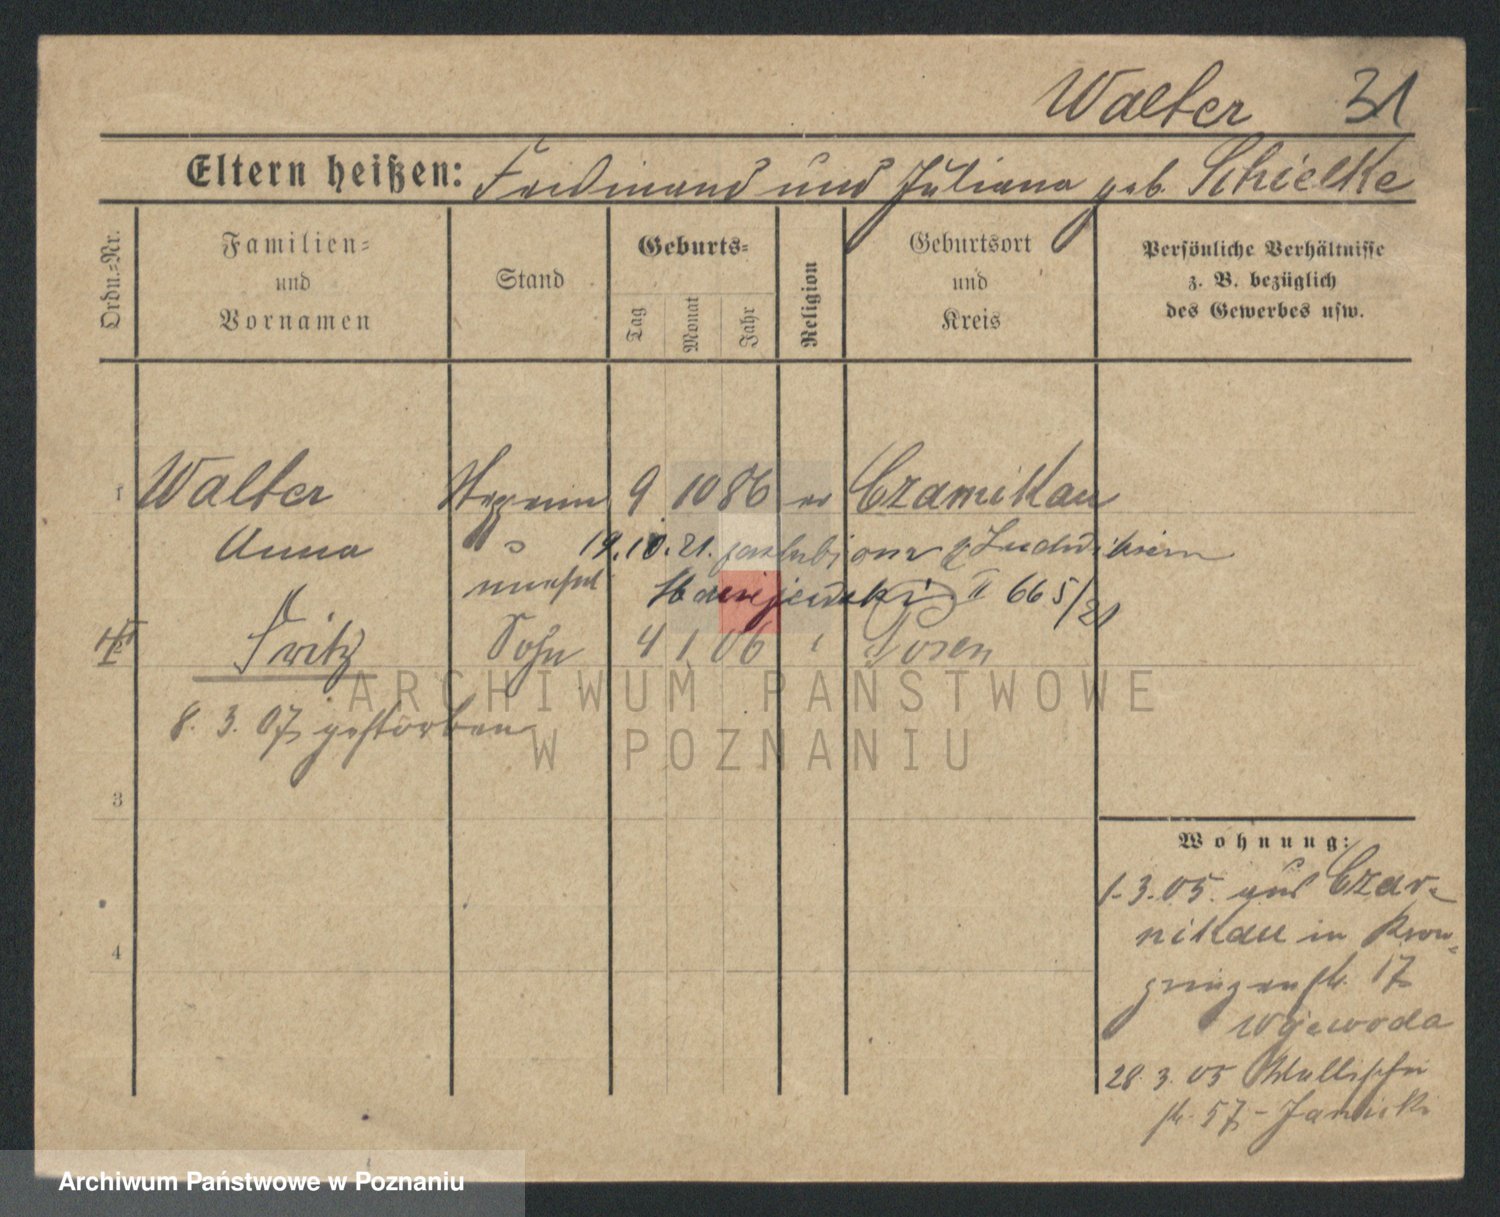 Walter 31
Eltern heißen: Ferdinand und Juliana geb. Schielke
Ordn.-Nr.
Familien-
und
Vornamen
Stand
Geburts-
Tag
Monat
Jahr
Religion
Geburtsort
und
Kreis
Persönliche Verhältnisse
z. B. bezüglich
des Gewerbes usw.
1 Walter 9 10 86 ev Czarnikau
Anna
19.10.21. poślubiona z Ludwikiem
unehel II 665/21
Fritz Sohn 4 1 06 Posen
8. 3. 07 gestorben
ARCHIWUM PAŃSTWOWE
W POZNANIU
3
4
Wohnung:
1.3.05. aus Czar-
nikau in Kron-
prinzenstr. 17
Wojewoda
28.3.05 Wallischei
str. 57 - Janicki
Archiwum Państwowe w Poznaniu